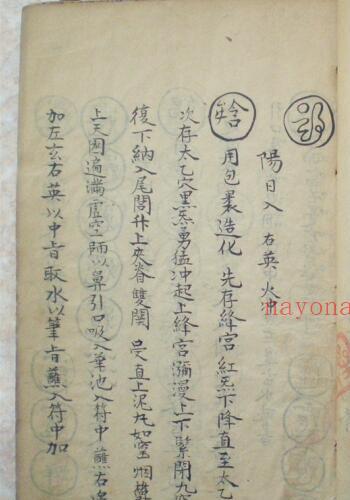 陽日入 右英火中
用包裹造化 先存絳宮紅炁下降直至太乙
次存太乙穴黑炁勇猛冲起上絳宮瀰漫上下緊開九
復下納入尾閭升上夾脊雙関 是直上泥丸如窑烟
上天圓遍滿虛空 師以鼻引口吸入筆池入符中蘸右
加左玄右英以中㫖取水以筆㫖蘸入符中加
nayona